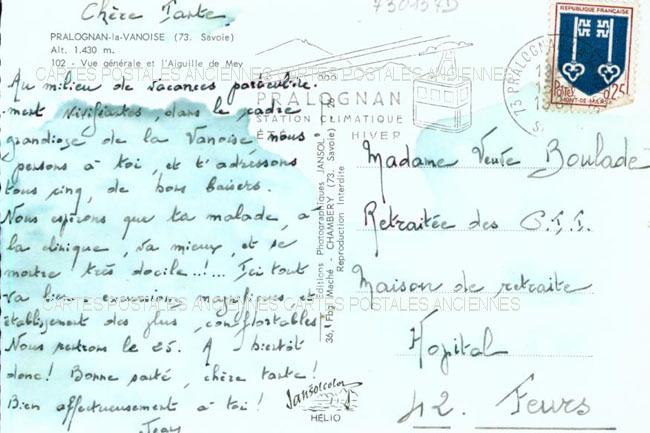 730137D
Chère Tante
PRALOGNAN-la-VANOISE (73. Savoie)
Alt. 1.430 m.
102 - Vue générale et l'Aiguille de Mey
Au milieu de vacances particulière-
ment vivifiantes, dans le cadre
grandiose de la Vanoise nous
pensons à toi, et t'adressons
tous cinq, de bons baisers.
Nous espérons que ta malade, à
la clinique, va mieux, et se
montre très docile..!... Ici tout
va bien : excursions magnifiques et
établissement des plus confortables
Nous rentrons le 25. A bientôt
donc! Bonne santé, chère tante!
Bien affectueusement à toi!
Jean
CARTES POSTALES ANCIENNES CARTES POSTALES ANCIENNES
CARTES POSTALES ANCIENNES CARTES POSTALES ANCIENNES
PRALOGNAN
STATION CLIMATIQUE
ÉTÉ HIVER
73 PRALOGNAN
REPUBLIQUE FRANÇAISE
POSTES
0,25
MONT-DE-MARSAN
Editions Photographiques JANSOL
36, Fbg Maché - CHAMBERY (73. Savoie)
Reproduction Interdite
Jansolcolor
HÉLIO
Madame Veuve Boulade
Retraitée des P.T.T.
Maison de retraite
Hopital
42. Feurs